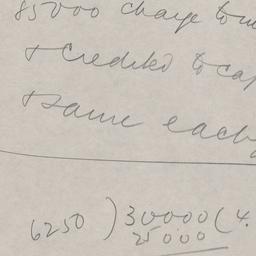 85000 charge to
+ credited to cap
+ same each
6250 ) 30000 ( 4.
25000